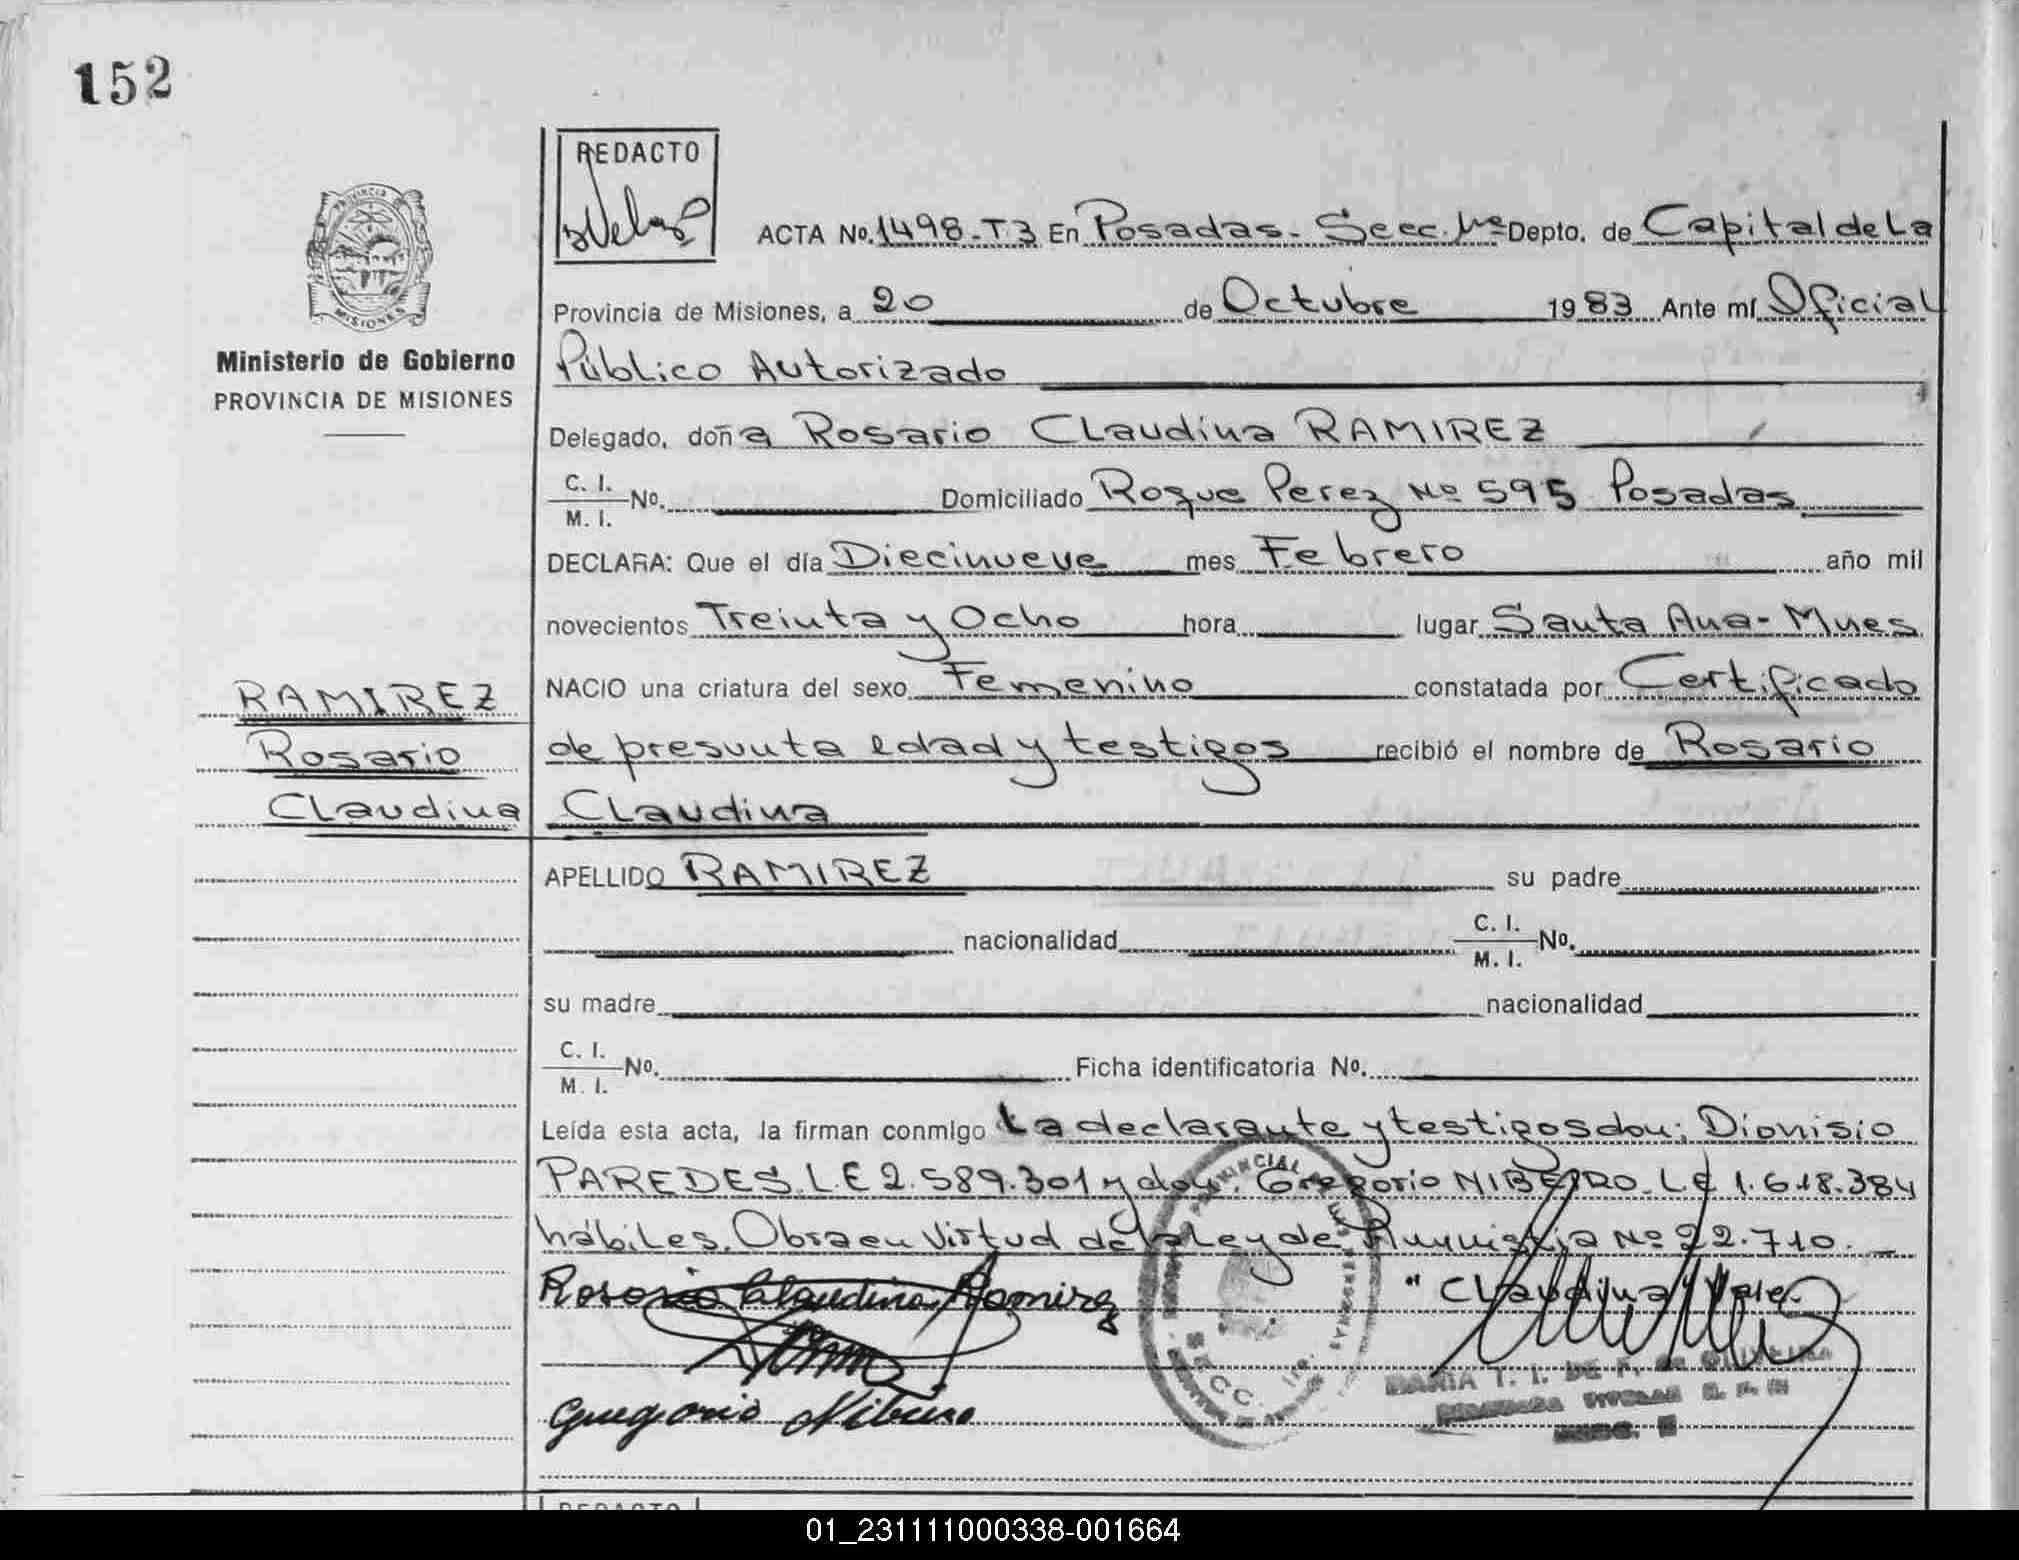 152
REDACTO
ACTA No. 1498-T3 En Posadas - Secc. 1ra Depto. de Capital de La
Provincia de Misiones, a 20 de Octubre 1983 Ante mí Oficial
Público Autorizado
Ministerio de Gobierno
PROVINCIA DE MISIONES
Delegado, doña Rosario Claudina RAMIREZ
C. I.
M. I. No. Domiciliado Roque Perez Nº 595 Posadas
DECLARA: Que el día Diecinueve mes Febrero año mil
novecientos Treinta y Ocho hora lugar Santa Ana - Mnes
NACIO una criatura del sexo Femenino constatada por Certificado
RAMIREZ
de presunta edad y testigos recibió el nombre de Rosario
Rosario
Claudina
Claudina
APELLIDO RAMIREZ su padre
nacionalidad C. I.
M. I. No.
su madre nacionalidad
C. I.
M. I. No. Ficha identificatoria No.
Leída esta acta, la firman conmigo La declarante y testigos don: Dionisio
PAREDES L.E 2.589.301 y don: Gregorio NIBEIRO L E 1.618.384
hábiles. Obra en virtud de la ley de Amnistia Nº 22.710.
Rosario Claudina Ramirez
" Claudina " Vale.
Gregorio Nibeiro
REDACTO
01_231111000338-001664